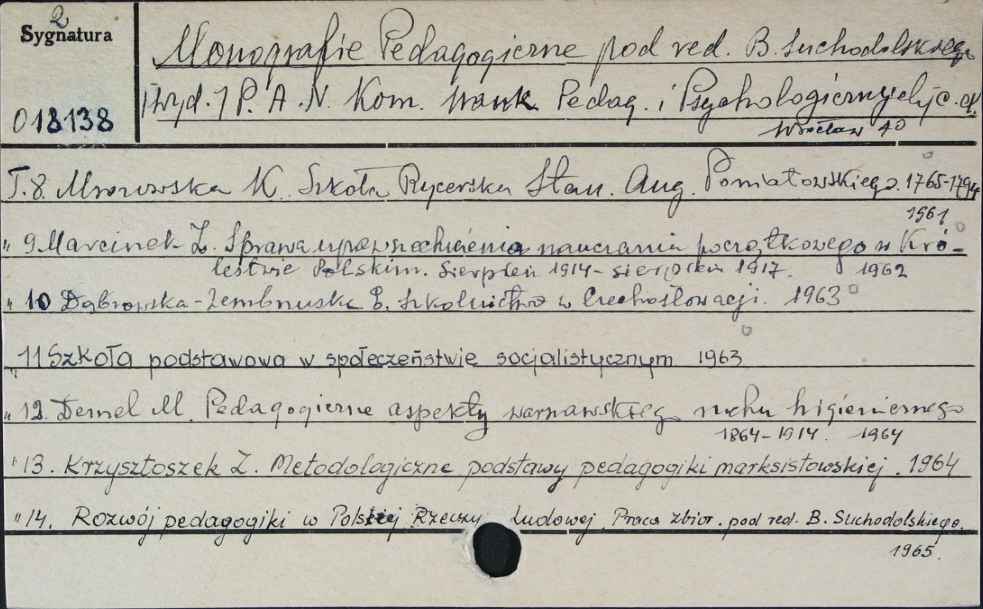 2
Sygnatura
018138
Monografie Pedagogiczne pod red. B. Suchodolskiego
[Wyd.] P.A.N. Kom. Nauk Pedag. i Psychologicznych c.d.
Wrocław 4°
T.8. Mrozowska K. Szkoła Rycerska Stan. Aug. Poniatowskiego. 1765-1794
1961
" 9 Marcinek Z. Sprawa upowszechnienia nauczania początkowego w Kró-
lestwie Polskim. Sierpień 1914 - sierpień 1917. 1962
" 10 Dąbrowska-Zembrzuska E. Szkolnictwo w Czechosłowacji. 1963
" 11 Szkoła podstawowa w społeczeństwie socjalistycznym 1963
" 12. Demel M. Pedagogiczne aspekty warszawskiego ruchu higienicznego
1864-1914. 1964
" 13. Krzysztoszek Z. Metodologiczne podstawy pedagogiki marksistowskiej. 1964
" 14. Rozwój pedagogiki w Polskiej Rzeczy Ludowej. Praca zbior. pod red. B. Suchodolskiego.
1965.